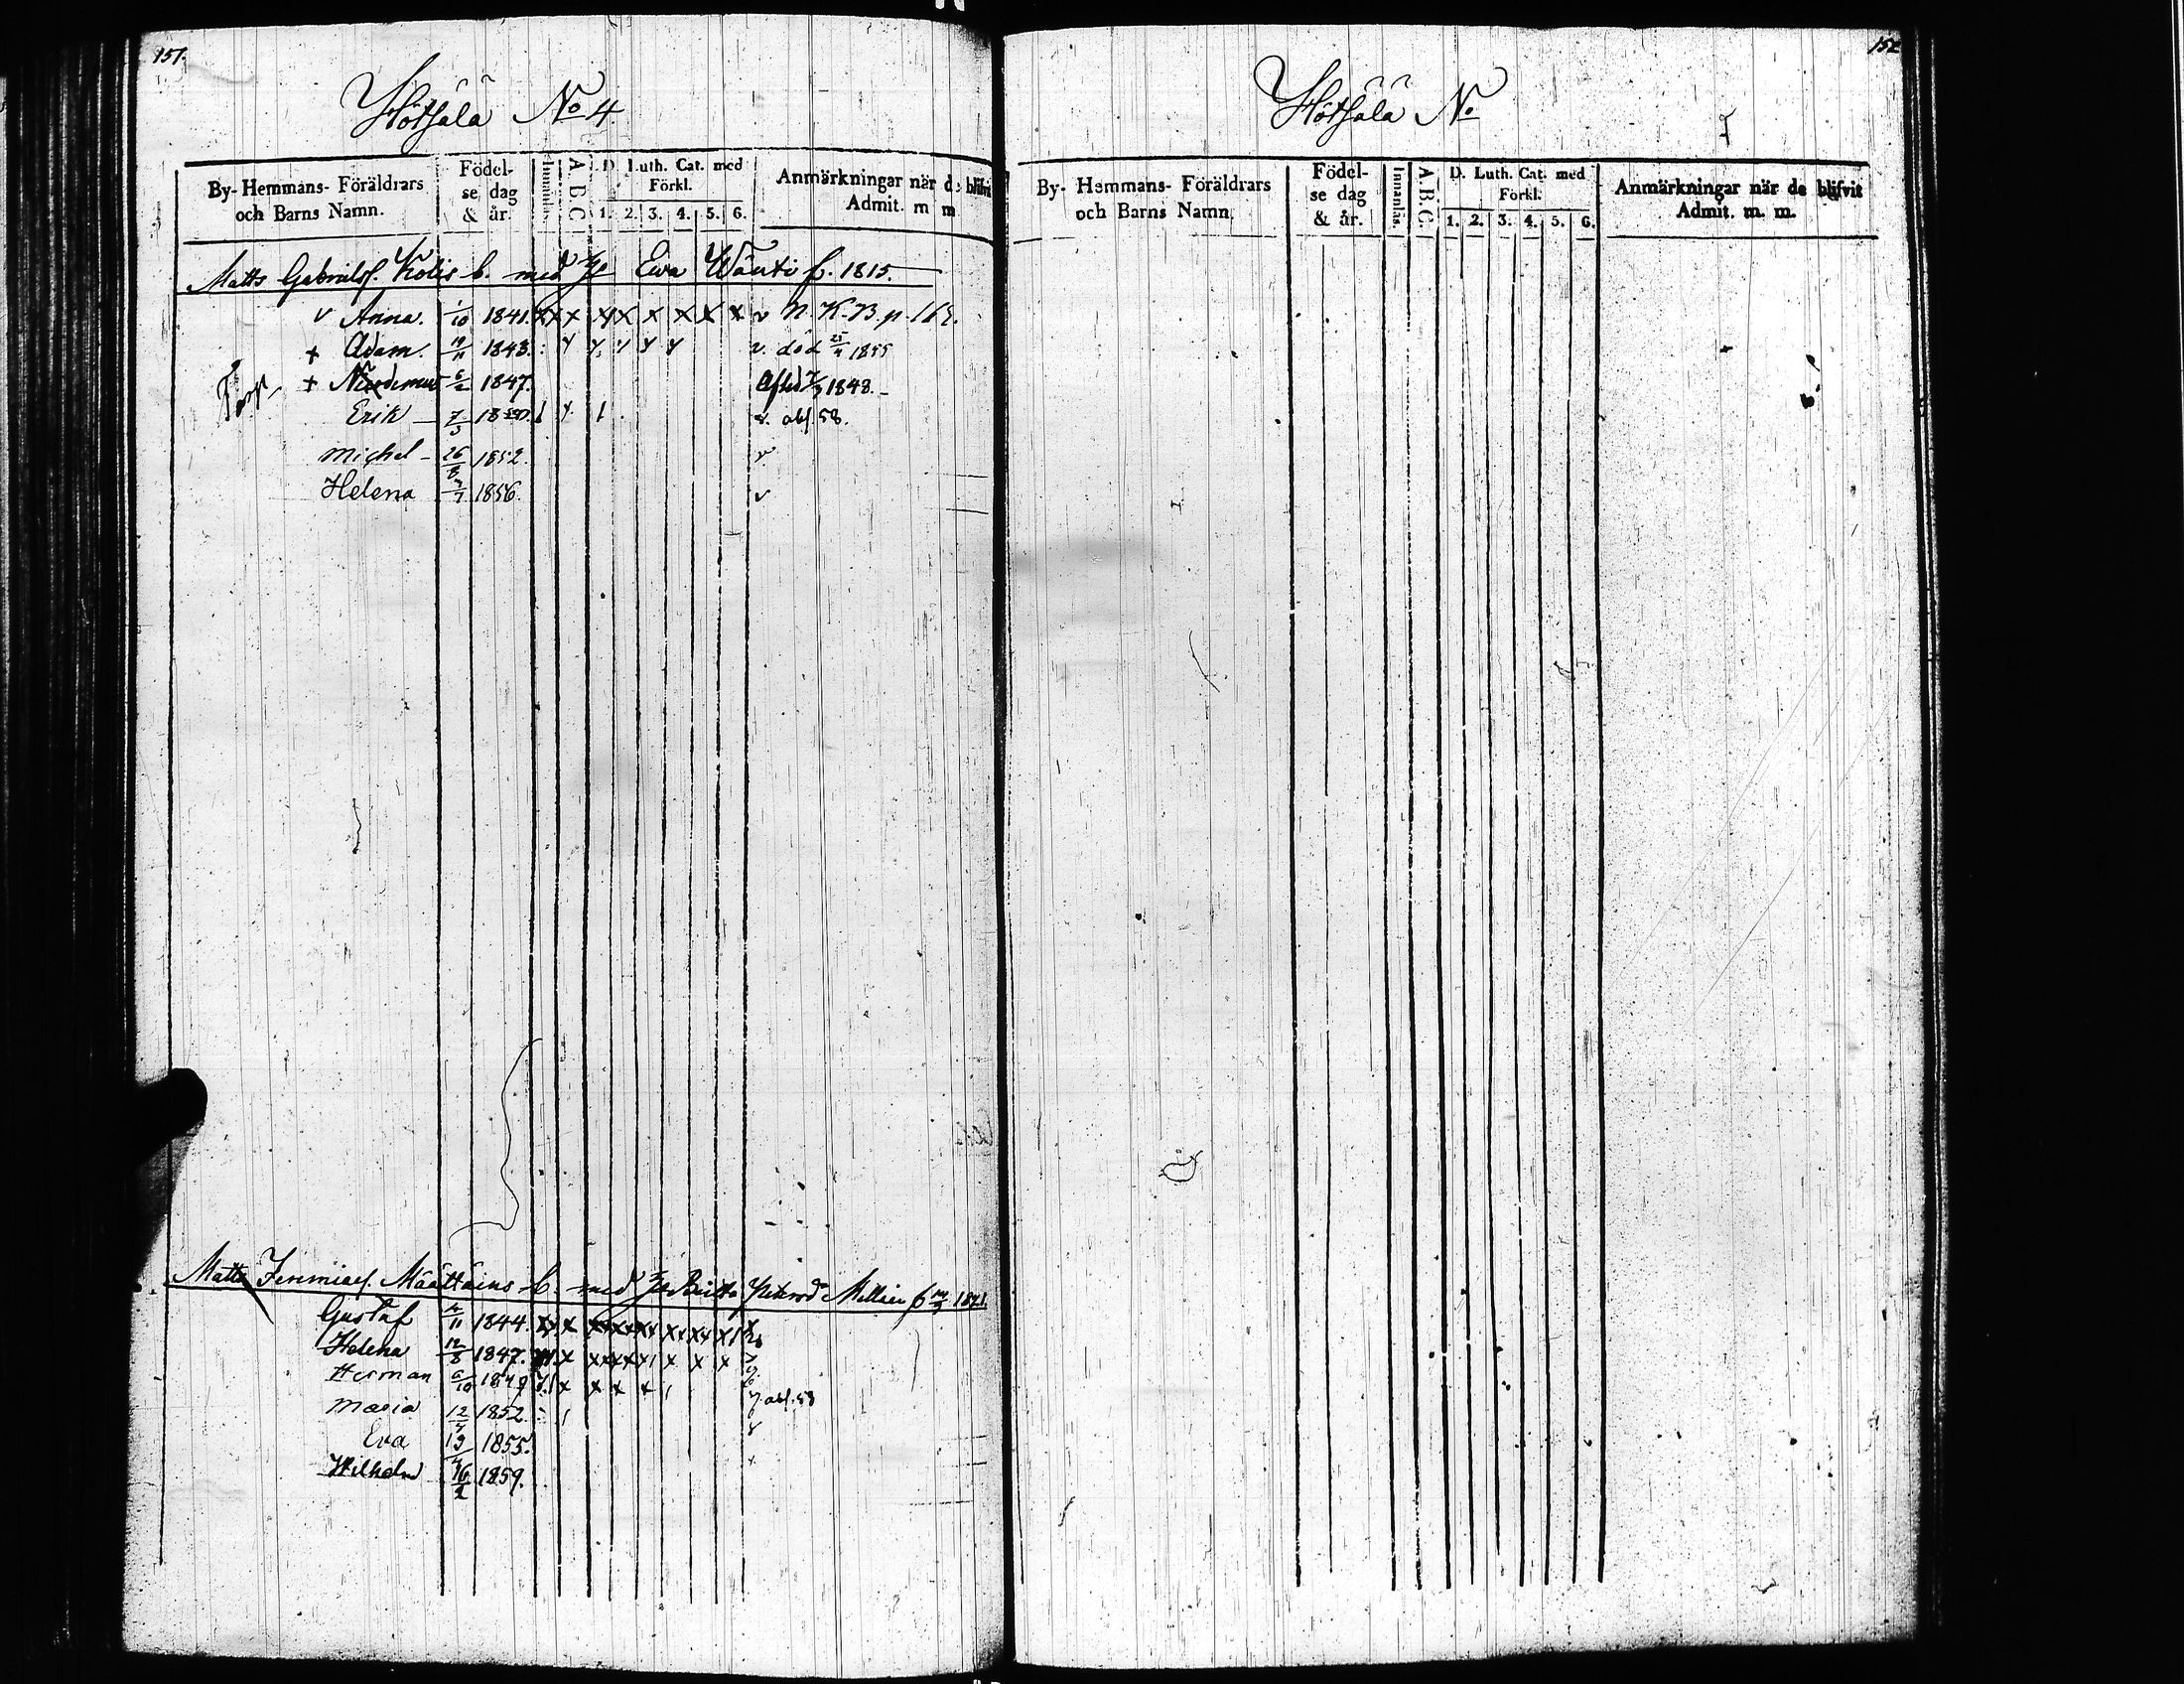 151.
Hötsölä No 4.
By- Hemmans- Föräldrars och Barns Namn.
Födel- se dag & år.
Innanläs.
A. B. C.
D. Luth. Cat. med Förkl.
1. 2. 3. 4. 5. 6.
Anmärkningar när de blifvit Admit. m m
Matts Gabrielss. Kolis b. med Ewa Wänti f. 1815.
v Anna. 1/10 1841. x x x x x x x x v N. K. B. p. 165.
+ Adam. 19/11 1843. v. död 25/4 1855
+ 6/2 1847. Afled 7/3 1848.
Erik 7/3 1850. v. abs. 58.
Michel 26/8 1852. v
Helena 7/7 1856. v
Matts Jeremiaes. Määttäins b. med Britta 1821.
Gustaf 1844.
Helena 12/8 1847.
Herman 6/10 1849
Maria 12/4 1852. abs. 58
Eva 19/4 1855.
Wilhelm 16/2 1859.
152
Hötsölä No
By- Hemmans- Föräldrars och Barns Namn.
Födel- se dag & år.
Innanläs.
A. B. C.
D. Luth. Cat. med Förkl.
1. 2. 3. 4. 5. 6.
Anmärkningar när de blifvit Admit. m. m.